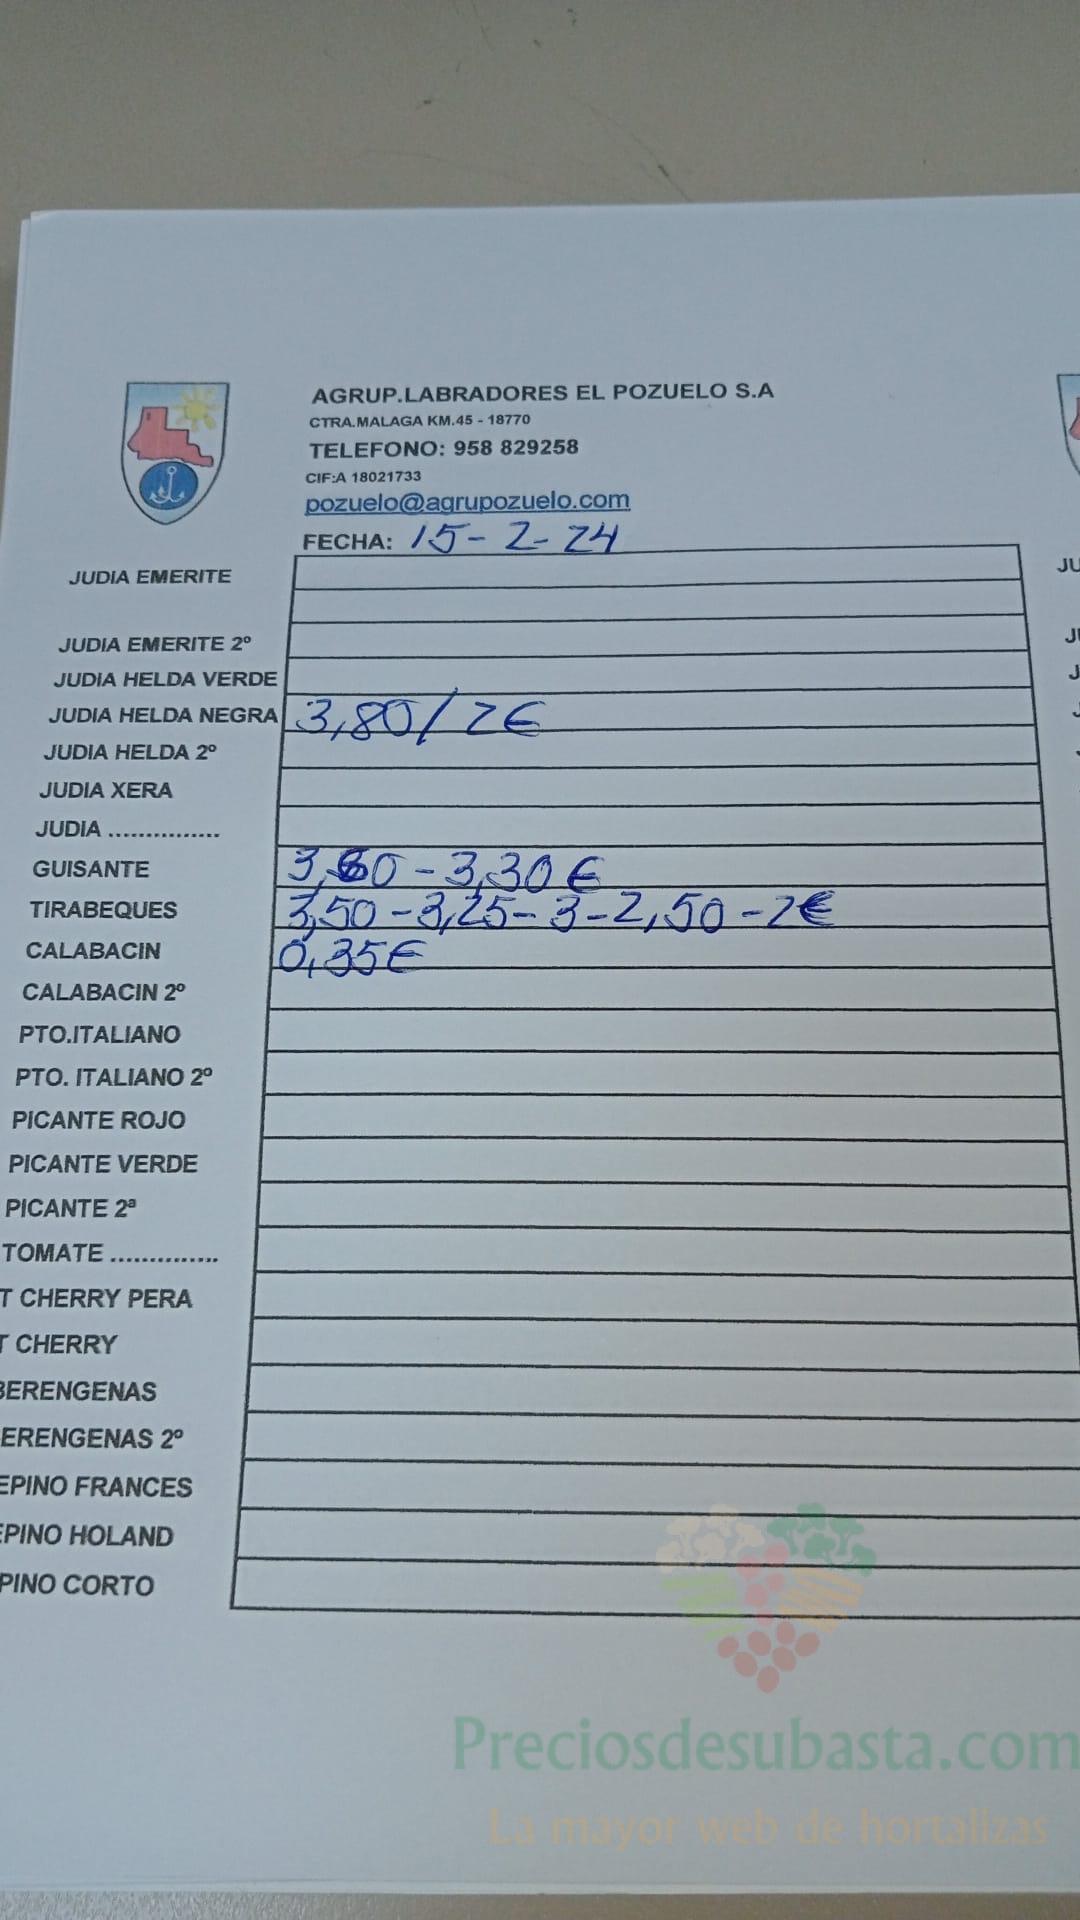 AGRUP.LABRADORES EL POZUELO S.A
CTRA.MALAGA KM.45 - 18770
TELEFONO: 958 829258
CIF:A 18021733
pozuelo@agrupozuelo.com
FECHA: 15-2-24
JUDIA EMERITE
JUDIA EMERITE 2º
JUDIA HELDA VERDE
JUDIA HELDA NEGRA 3,80/2€
JUDIA HELDA 2º
JUDIA XERA
JUDIA ...............
GUISANTE - 3,30€
TIRABEQUES 3,50-3,25-3-2,50-2€
CALABACIN 0,35€
CALABACIN 2º
PTO.ITALIANO
PTO. ITALIANO 2º
PICANTE ROJO
PICANTE VERDE
PICANTE 2ª
TOMATE ..............
T CHERRY PERA
T CHERRY
BERENGENAS
ERENGENAS 2º
EPINO FRANCES
EPINO HOLAND
PINO CORTO
JU
JU
J
Preciosdesubasta.com
La mayor web de hortalizas